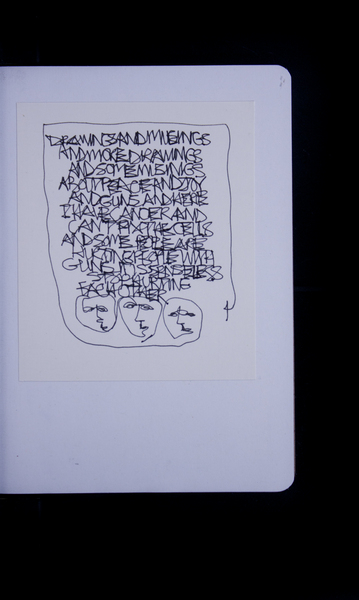 DRAWINGS AND MUSINGS
AND MORE DRAWINGS
AND SOME MUSINGS
ABOUT PEACE AND JOY
AND GUNS AND HERE
I HAVE CANCER AND
CAN'T FIX THE CELLS
AND SOME PEOPLE ARE
HURTING PEOPLE WITH
GUNS IT'S SENSELESS
STOP HURTING
EACH OTHER